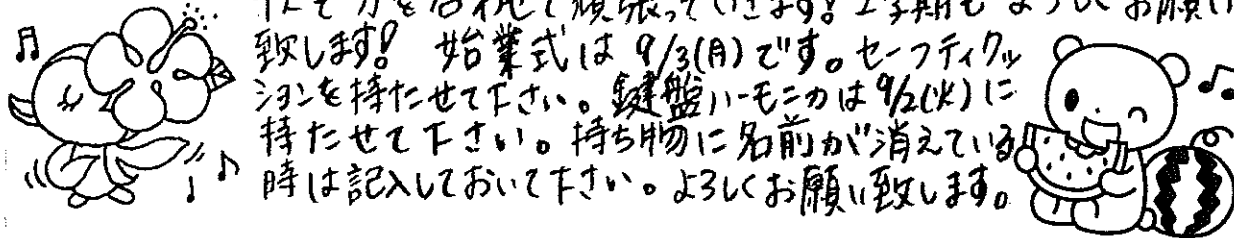 力を合わせて頑張っていきます！2学期もよろしくお願い
致します！ 始業式は9/3(月)です。セーフティクッ
ションを持たせて下さい。鍵盤ハーモニカは9/2(火)に
持たせて下さい。持ち物に名前が消えている
時は記入しておいて下さい。よろしくお願い致します。